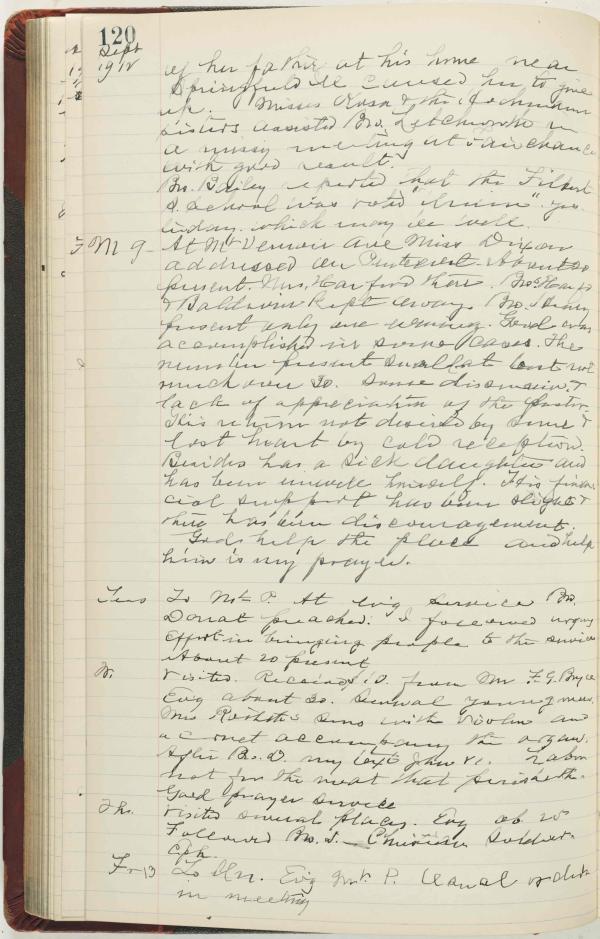 120
Sept
1912
of her father at his home near
Springfield Ill caused her to give
up. Misses Rosa & the
sisters assisted Bro. Letchworth in
a missy meeting at Fairchance
with good result.
Bro. Bailey reported that the Filbert
S. School was voted "Union" yes
terday. which may be well.
M 9 - At Mt Vernon Ave Miss Dixon
addressed on Pentecost. About 20
present. Mrs. Harford there.
& Baldwin kept away. Bro.
present only one evening. Good was
accomplished in some cases. The
number present small at best not
much over 30. Some dissension &
lack of appreciation of the Pastor.
His return not desired by some &
lost heart by cold reception.
Besides has a sick daughter and
has been unwell himself. His finan
cial support has been slight &
there has been discouragement.
God help the place and help
him is my prayer.
Tues To Mt. P. At evg service Bro.
Donat preached. I followed urging
effort in bringing people to the service
About 20 present
W. Visited. Received from Mr F. G. Bryce
Evg about 30. Several young men.
Mrs sons with Violin and
a Cornet accompany the organ.
After Bro. D. my text John VI. Labor
not for the meat that perisheth.
Good prayer service
Ths. Visited several places. Evg ab 25
Followed Bro. D. - Christian Soldier.
Eph.
Fr 13 To Un. Evg Mt. P. Usual order
in meeting